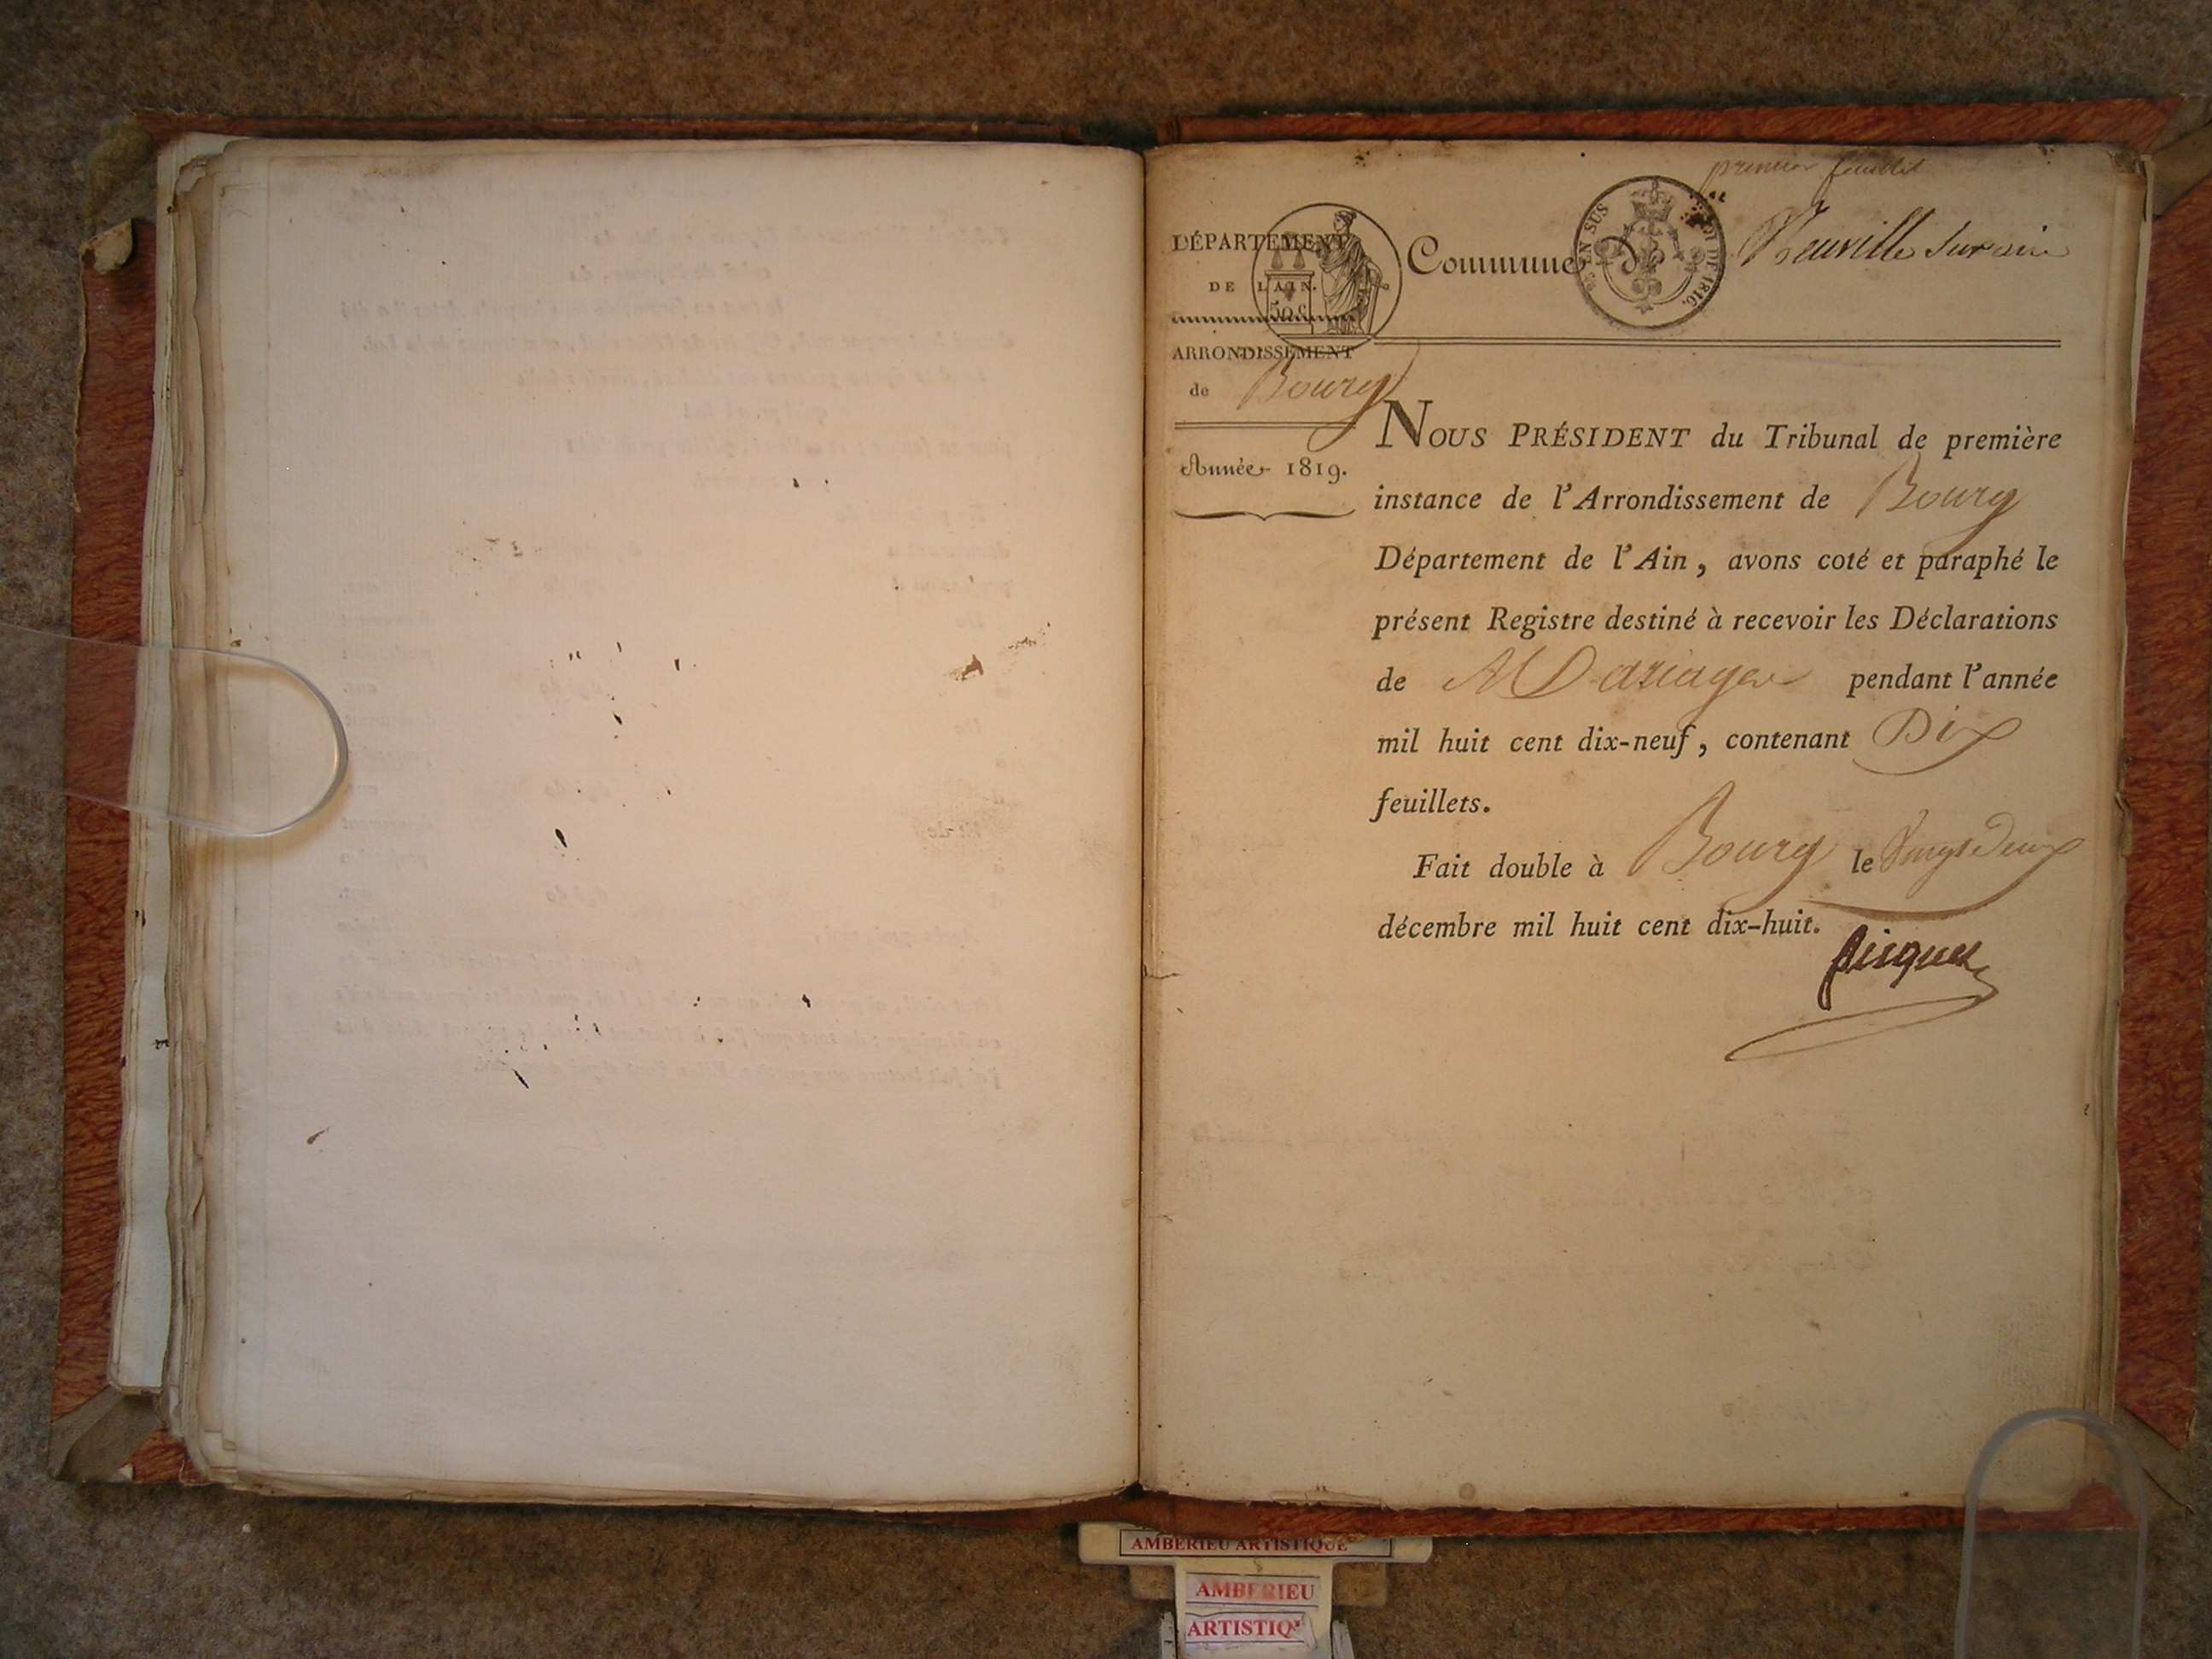 premier feuillet
DÉPARTEMENT
DE L'AIN.
50 C
ARRONDISSEMENT
de Bourg
Année 1819.
Commune de Neuville sur ain
EN SUS
LOI DE 1816.
NOUS PRÉSIDENT du Tribunal de première
instance de l'Arrondissement de Bourg
Département de l'Ain, avons coté et paraphé le
présent Registre destiné à recevoir les Déclarations
de Mariages pendant l'année
mil huit cent dix-neuf, contenant Dix
feuillets.
Fait double à Bourg le Vingt Deux
décembre mil huit cent dix-huit.
Picquet
AMBERIEU ARTISTIQUE
AMBERIEU
ARTISTIQ